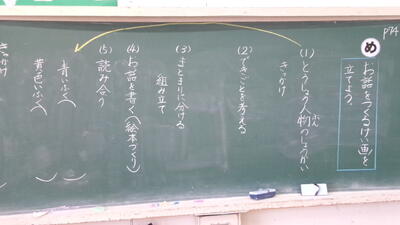 p74
め
お話をつくるけい画を
立てよう。
(1) とうじょう人物のしょうかい
きっかけ
(2) できごとを考える
(3) まとまりに分ける
組み立て
(4) お話を書く(絵本づくり)
(5) 読み合う
青いふく( )
黄色いふく( )
きっかけ